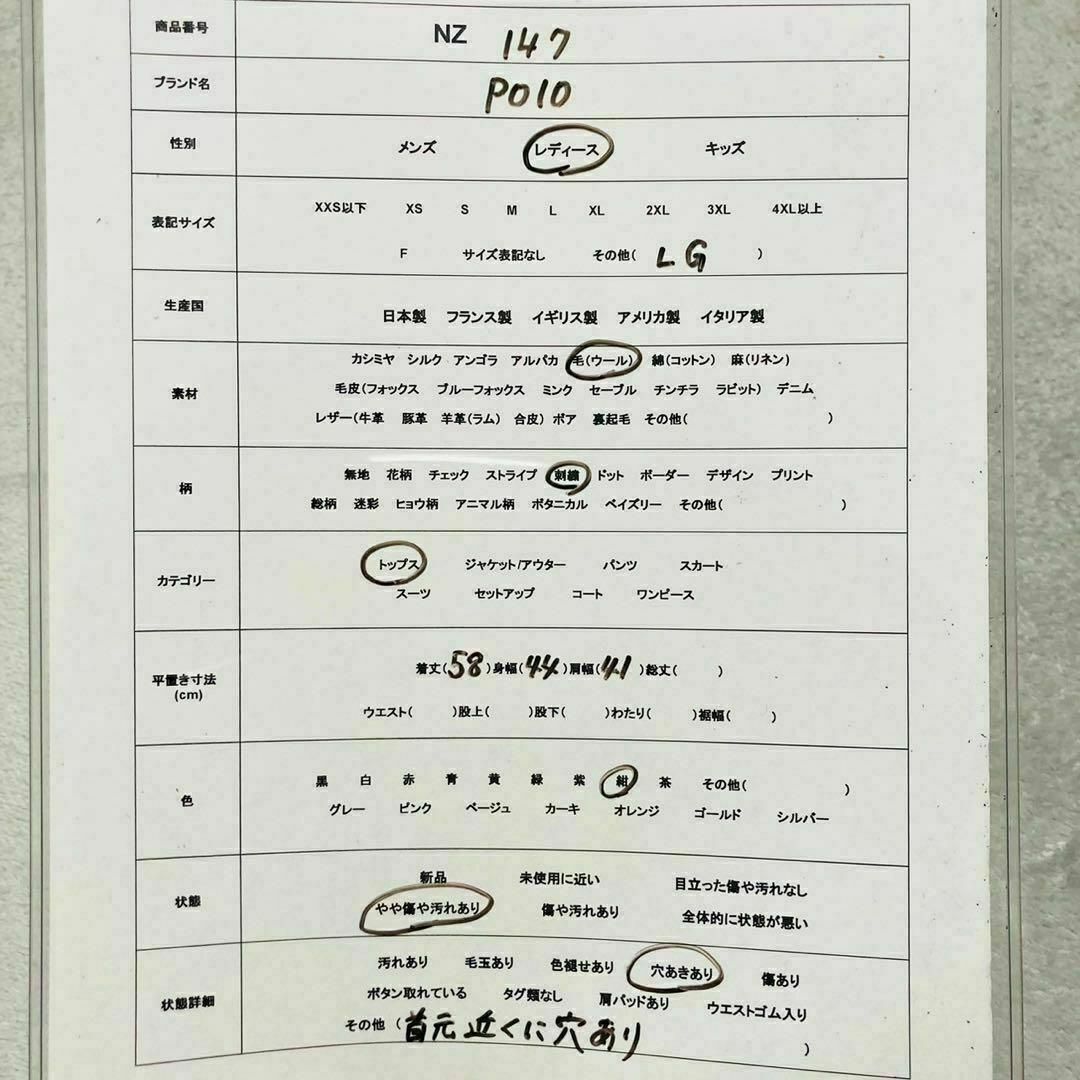 商品番号 NZ 147
ブランド名 POlO
性別 メンズ レディース キッズ
表記サイズ XXS以下 XS S M L XL 2XL 3XL 4XL以上
F サイズ表記なし その他( LG )
生産国 日本製 フランス製 イギリス製 アメリカ製 イタリア製
素材 カシミヤ シルク アンゴラ アルパカ 毛(ウール) 綿(コットン) 麻(リネン)
毛皮(フォックス ブルーフォックス ミンク セーブル チンチラ ラビット) デニム
レザー(牛革 豚革 羊革(ラム) 合皮) ボア 裏起毛 その他( )
柄 無地 花柄 チェック ストライプ 刺繍 ドット ボーダー デザイン プリント
総柄 迷彩 ヒョウ柄 アニマル柄 ボタニカル ペイズリー その他( )
カテゴリー トップス ジャケット/アウター パンツ スカート
スーツ セットアップ コート ワンピース
平置き寸法 (cm) 着丈(58)身幅(44)肩幅(41)総丈( )
ウエスト( )股上( )股下( )わたり( )裾幅( )
色 黒 白 赤 青 黄 緑 紫 紺 茶 その他( )
グレー ピンク ベージュ カーキ オレンジ ゴールド シルバー
状態 新品 未使用に近い 目立った傷や汚れなし
やや傷や汚れあり 傷や汚れあり 全体的に状態が悪い
状態詳細 汚れあり 毛玉あり 色褪せあり 穴あきあり 傷あり
ボタン取れている タグ類なし 肩パッドあり ウエストゴム入り
その他(首元近くに穴あり )